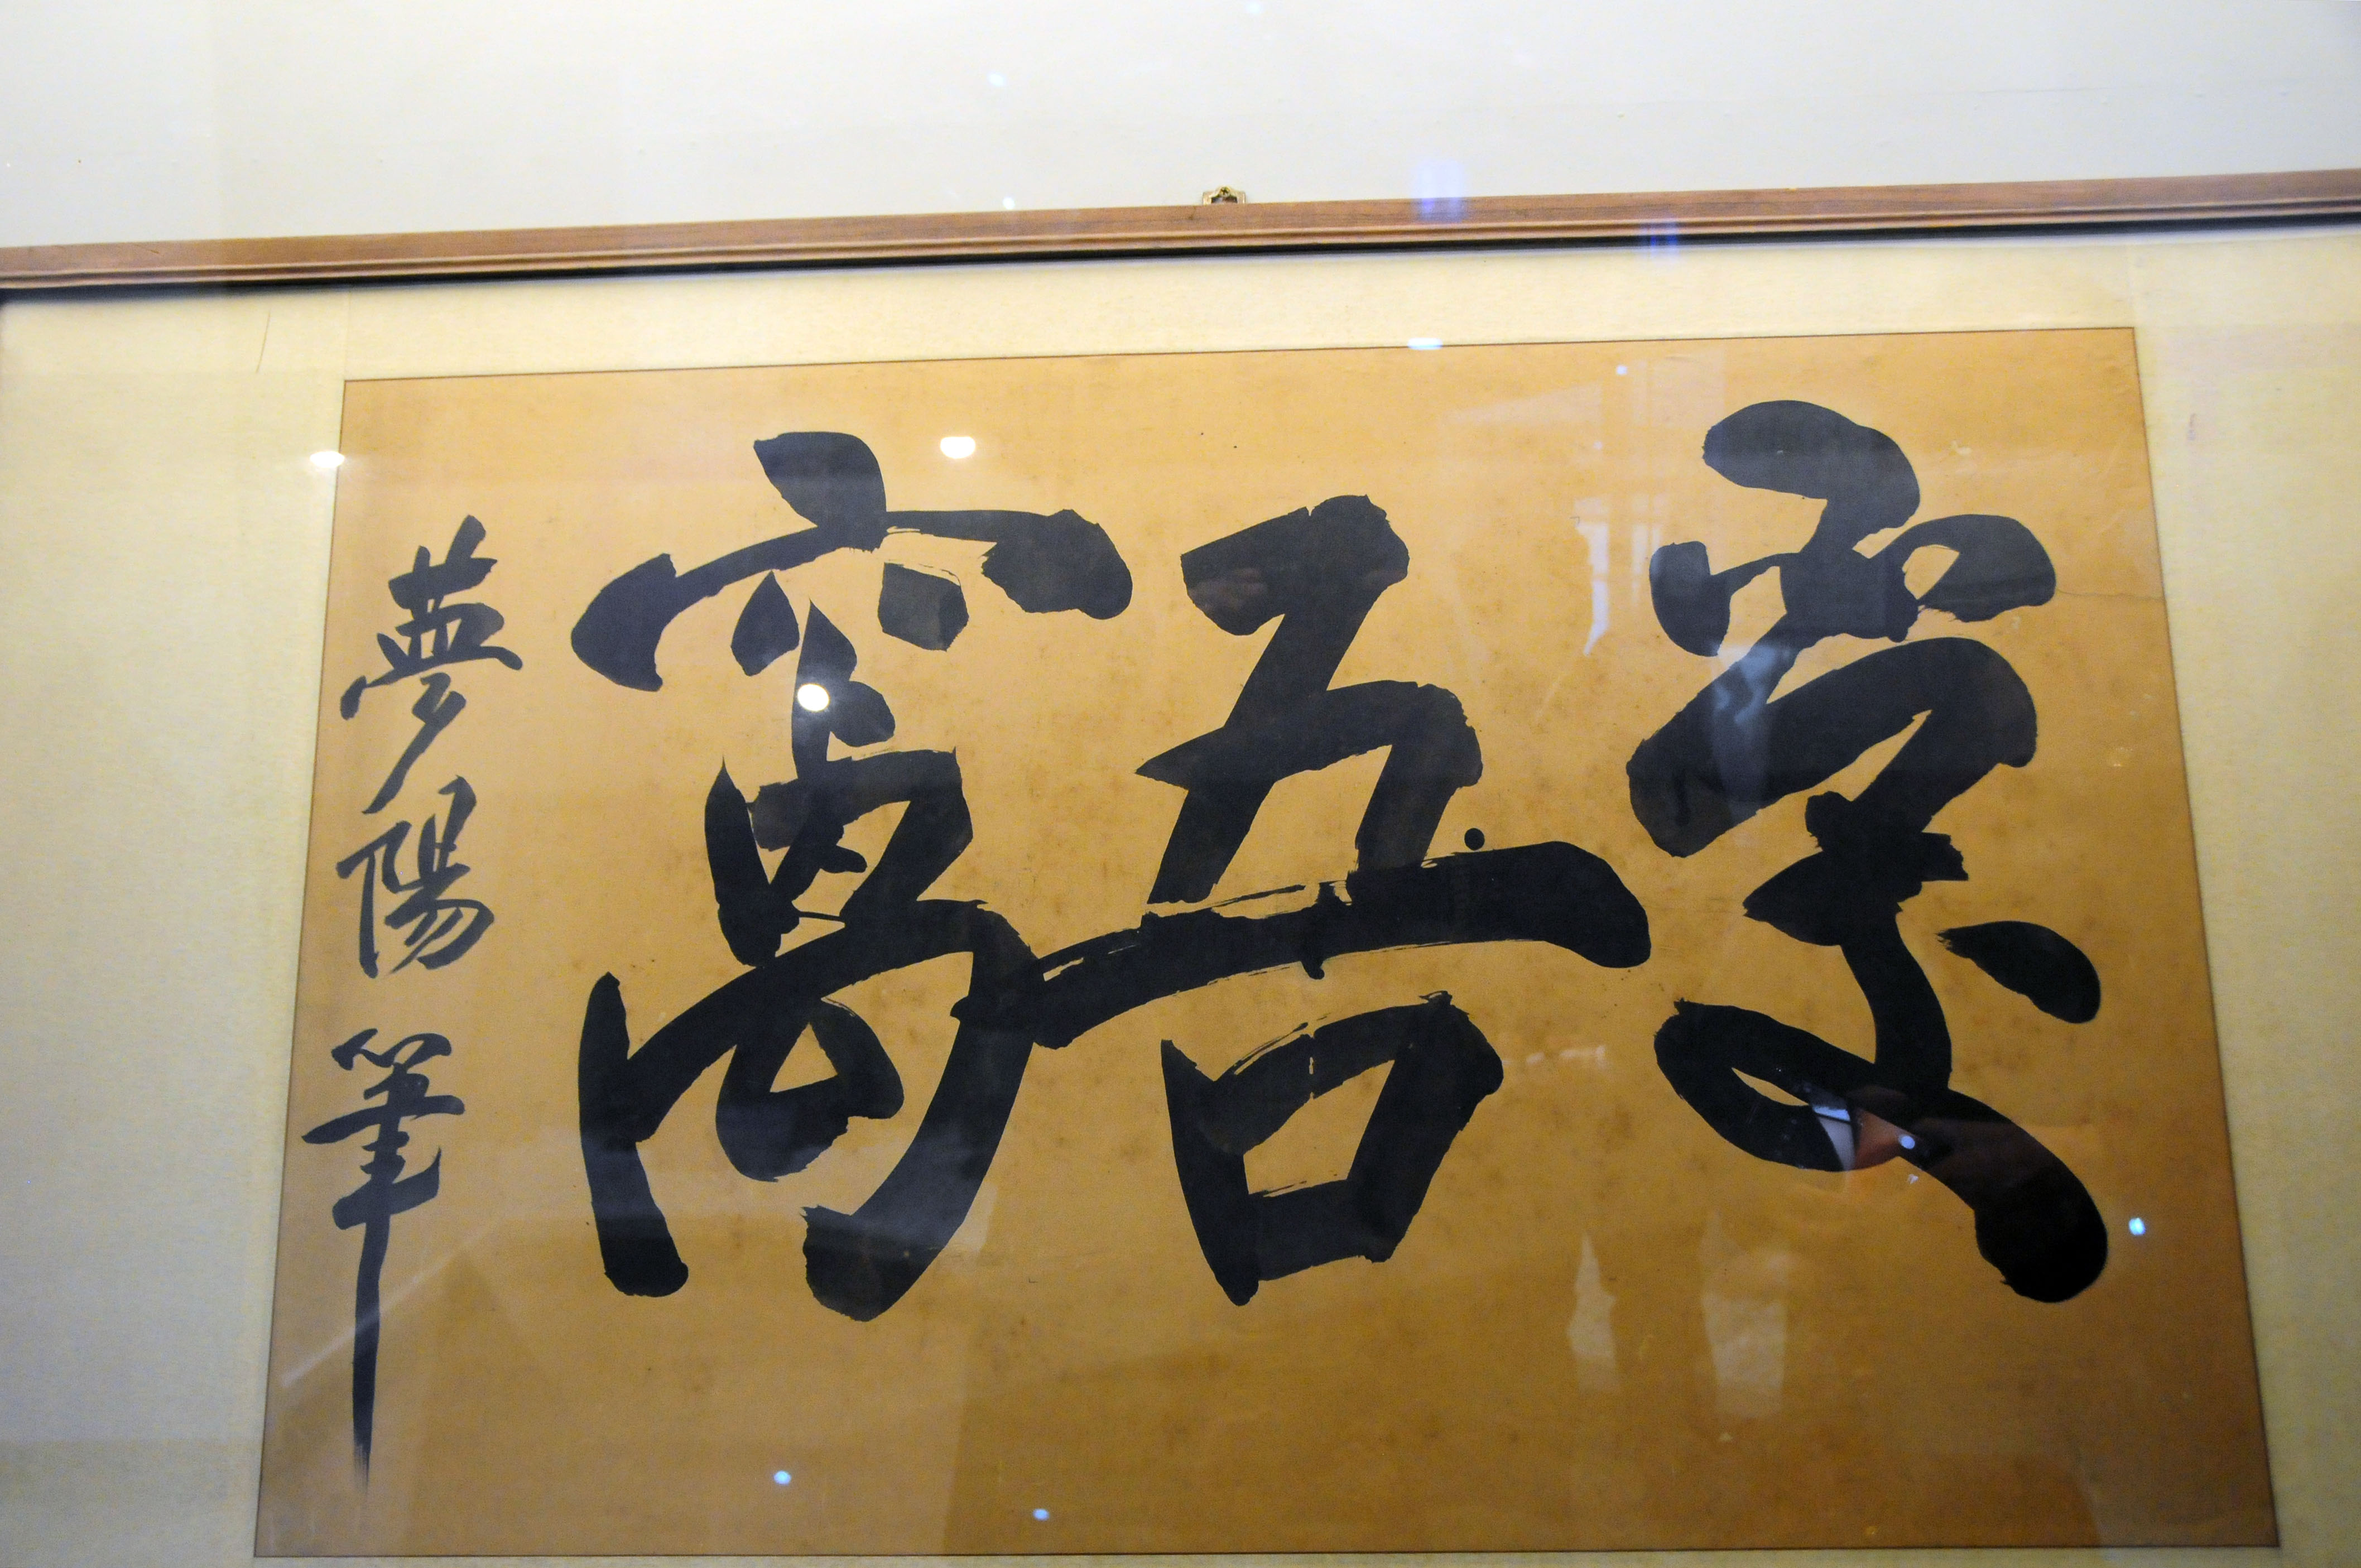 愛吾窩
夢陽 筆